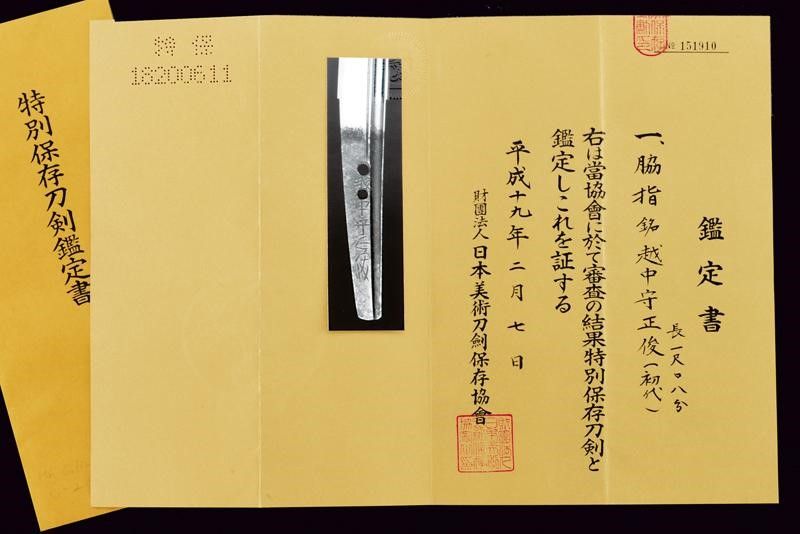 特別保存刀剣鑑定書
特保
18200611
№ 151910
鑑定書
一、脇指 銘 越中守正俊(初代)
長一尺〇八分
右は當協會に於て審査の結果特別保存刀剣と
鑑定しこれを証する
平成十九年二月七日
財團法人日本美術刀劍保存協會